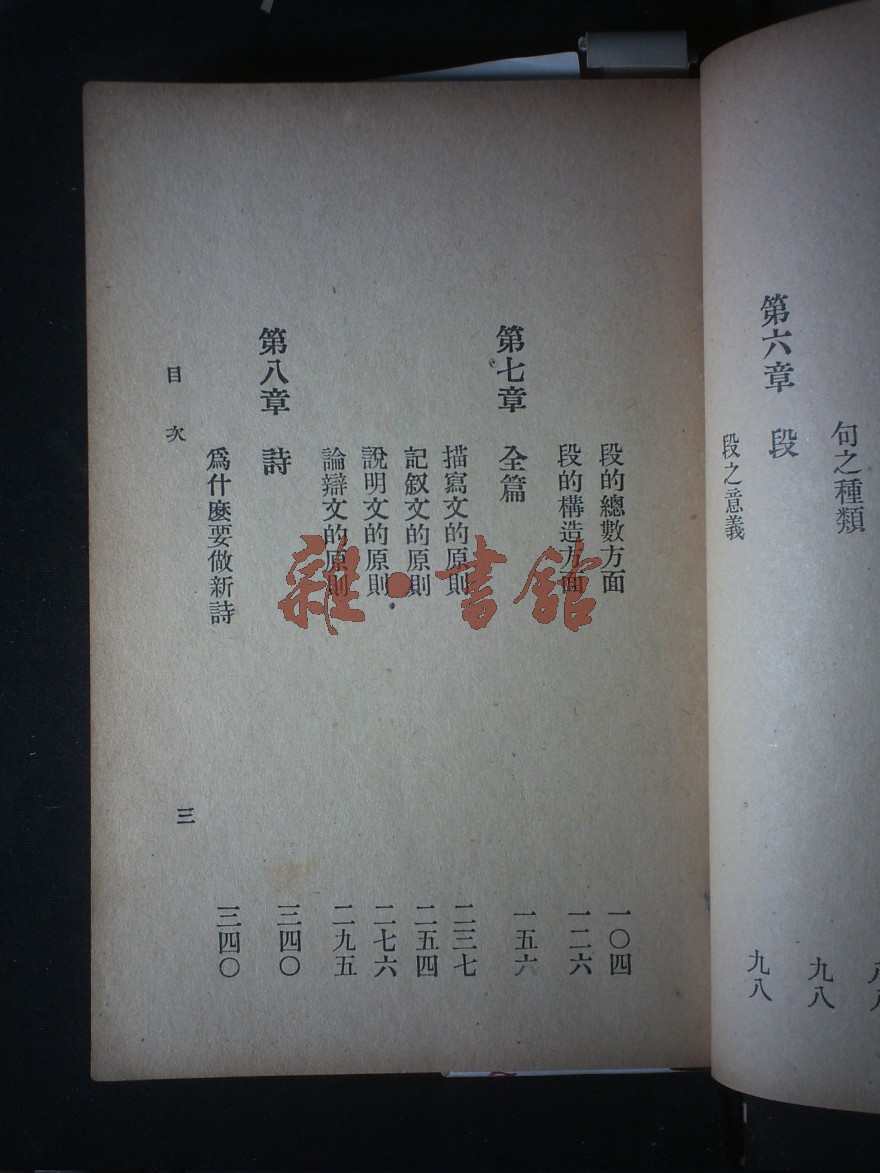 句之種類
第六章 段 九八
段之意義 九八
段的總數方面 一〇四
段的構造方面 一二六
第七章 全篇 一五六
描寫文的原則 二三七
記叙文的原則 二五四
說明文的原則 二七六
論辯文的原則 二九五
第八章 詩 三四〇
爲什麽要做新詩 三四〇
目次 三
雜·書館